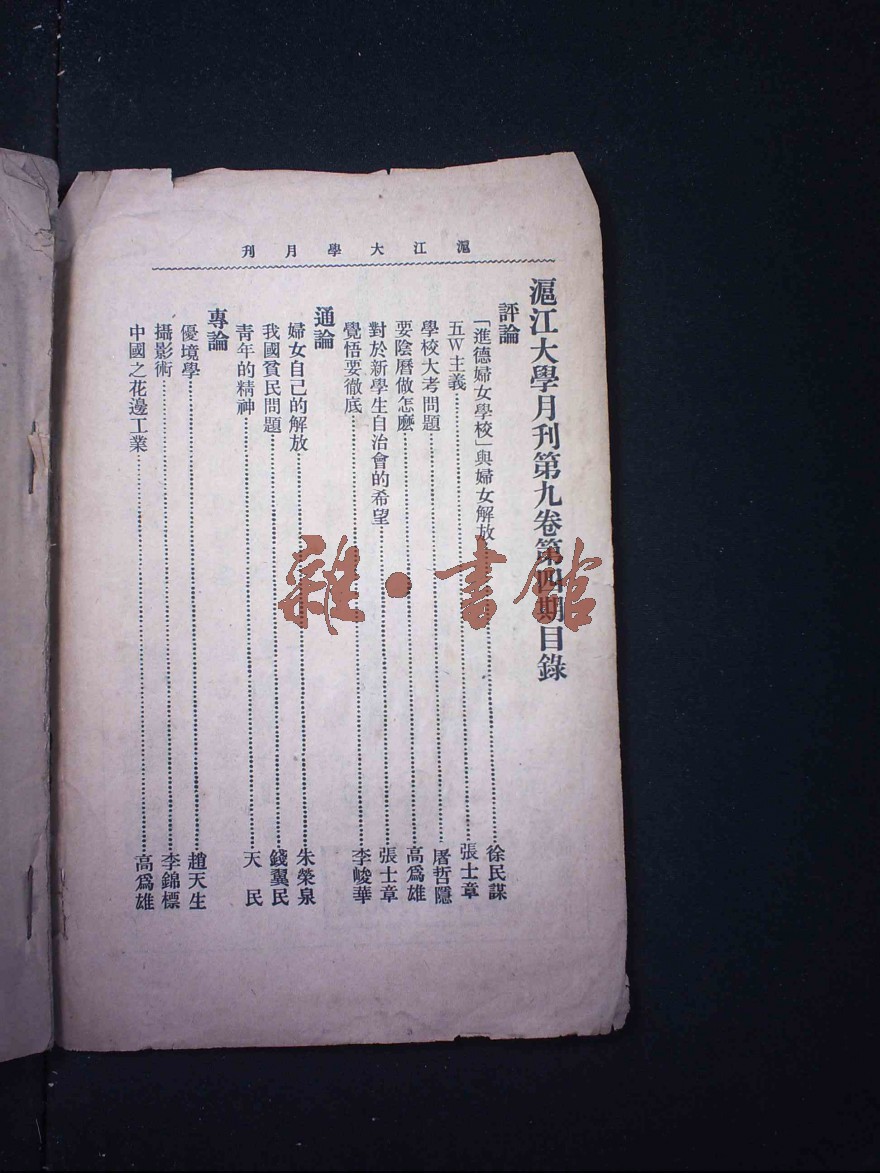 滬江大學月刊
滬江大學月刊第九卷第四期目錄
評論
「進德婦女學校」與婦女解放……徐民謀
五W主義……張士章
學校大考問題……屠哲隱
要陰曆做怎麽……高爲雄
對於新學生自治會的希望……張士章
覺悟要徹底……李峻華
通論
婦女自己的解放……朱榮泉
我國貧民問題……錢翼民
靑年的精神……天民
專論
優境學……趙天生
攝影術……李錦標
中國之花邊工業……高爲雄
雜·書館